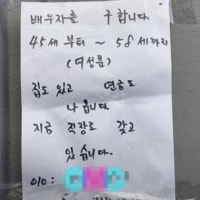 배우자를 구합니다
45세 부터 ~ 58세까지
(여성분)
집도 있고 연금도
나옵니다
지금 직장도 갖고
있습니다.
010: